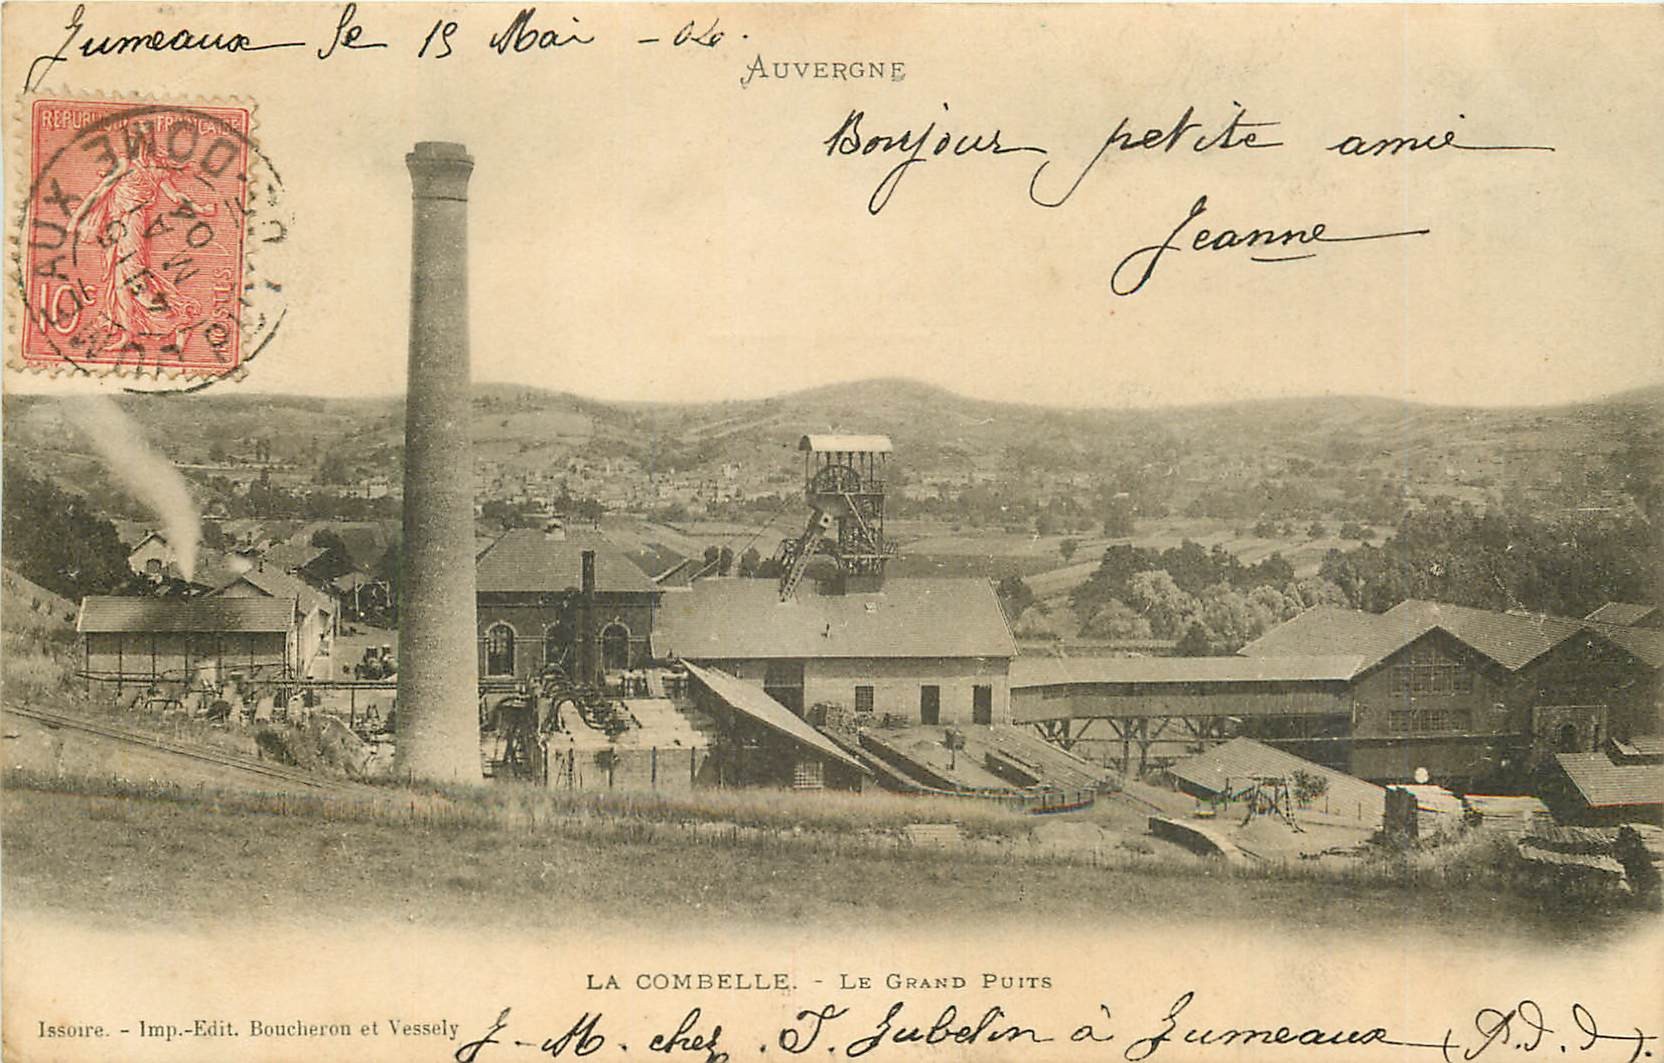 Jumeaux le 15 Mai - 04.
AUVERGNE
REPUBLIQUE FRANÇAISE
DOME
15 MAI 04
10c
POSTES
Bonjour petite amie
Jeanne
LA COMBELLE. - LE GRAND PUITS
Issoire. - Imp.-Edit. Boucheron et Vessely
J-M. chez. J. Jubelin à Jumeaux (P.d.D).